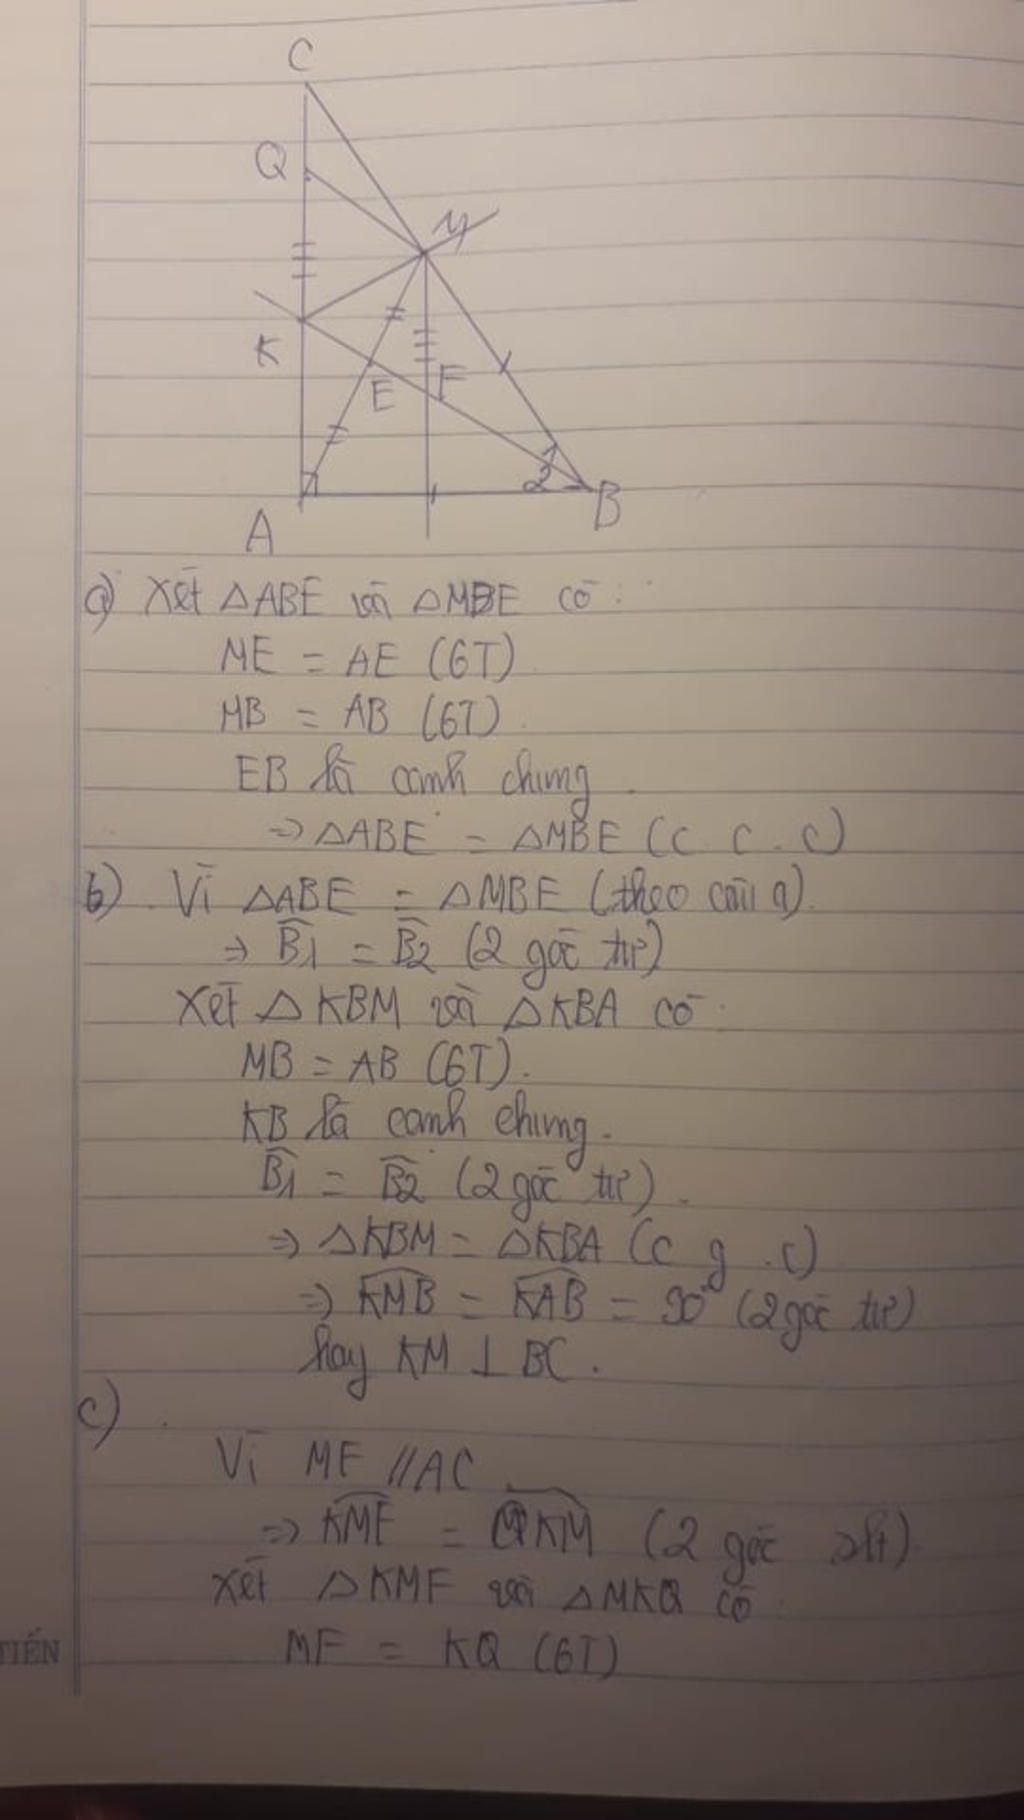 C
Q
M
K
E
F
1
2
A
B
a) Xét △ABE và △MBE có:
ME = AE (GT)
MB = AB (GT).
EB là cạnh chung.
=> △ABE = △MBE (c c . c)
b) Vì △ABE = △MBE (theo câu a).
=> B̂1 = B̂2 (2 góc tư)
Xét △KBM và △KBA có
MB = AB (GT).
KB là cạnh chung.
B̂1 = B̂2 (2 góc tư).
=> △KBM = △KBA (c g . c)
=> K͡MB = K͡AB = 90° (2 góc tư)
hay KM ⊥ BC.
c)
Vì MF // AC
=> K͡MF = Q͡KM (2 góc slt)
Xét △KMF và △MKQ có
MF = KQ (GT)
TIẾN